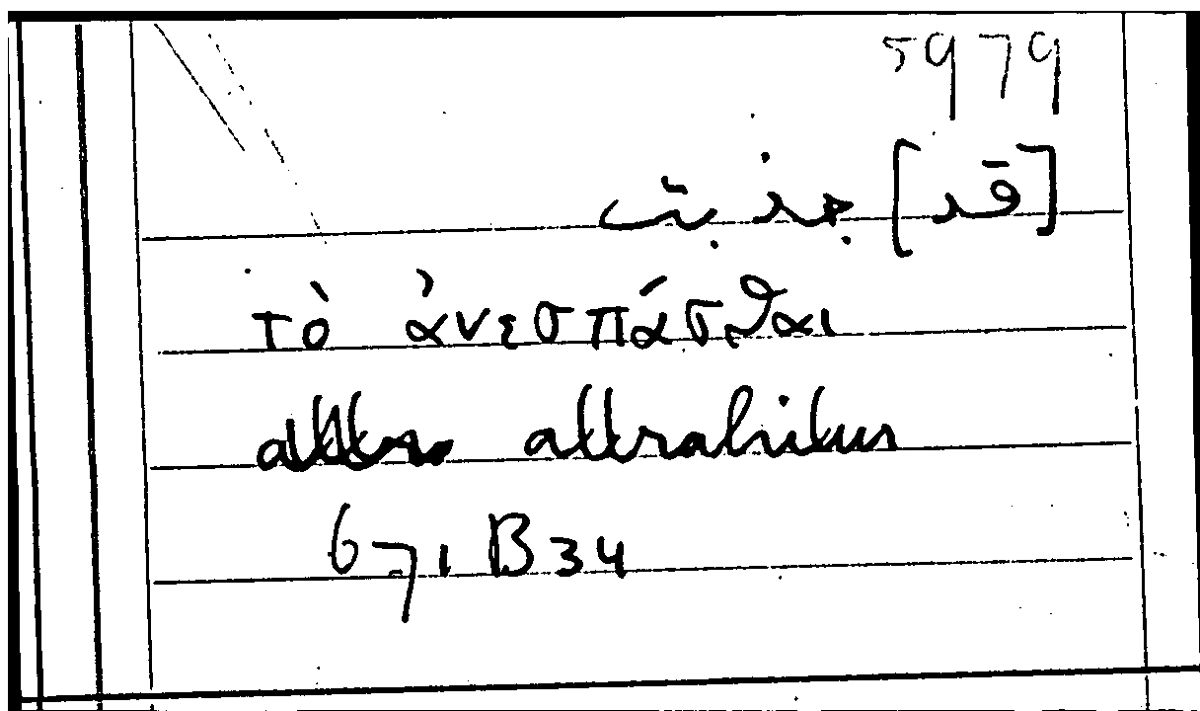 5979
[قد] جذبت
τὸ ἀνεσπάσθαι
attrahitur
671 B34